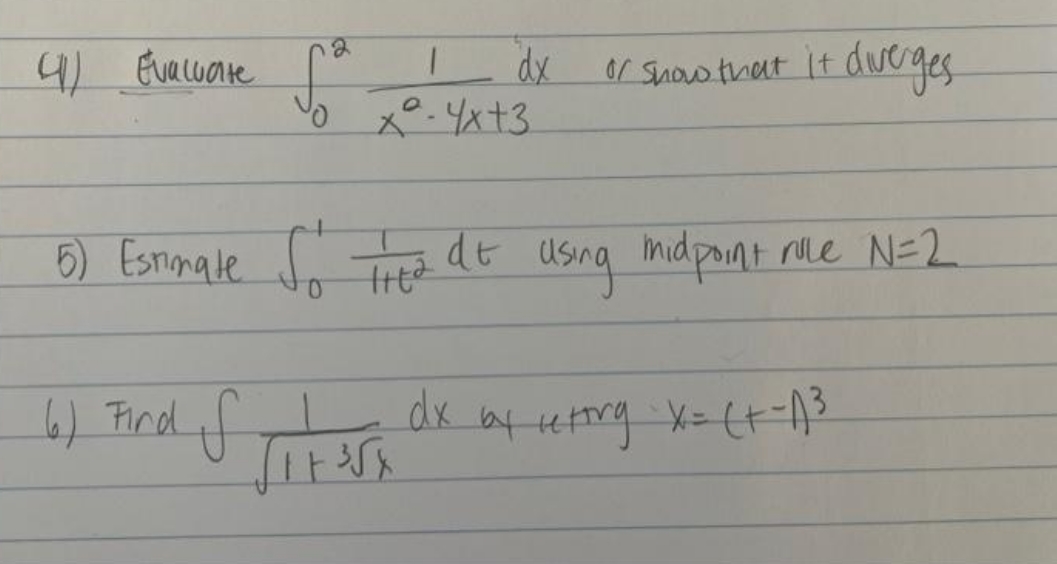 4) Evaluate ∫₀² 1/(x² - 4x + 3) dx or show that it diverges
5) Estimate ∫₀¹ 1/(1+t²) dt using midpoint rule N=2
6) Find ∫ 1/√(1 + ³√x) dx by letting x = (t-1)³